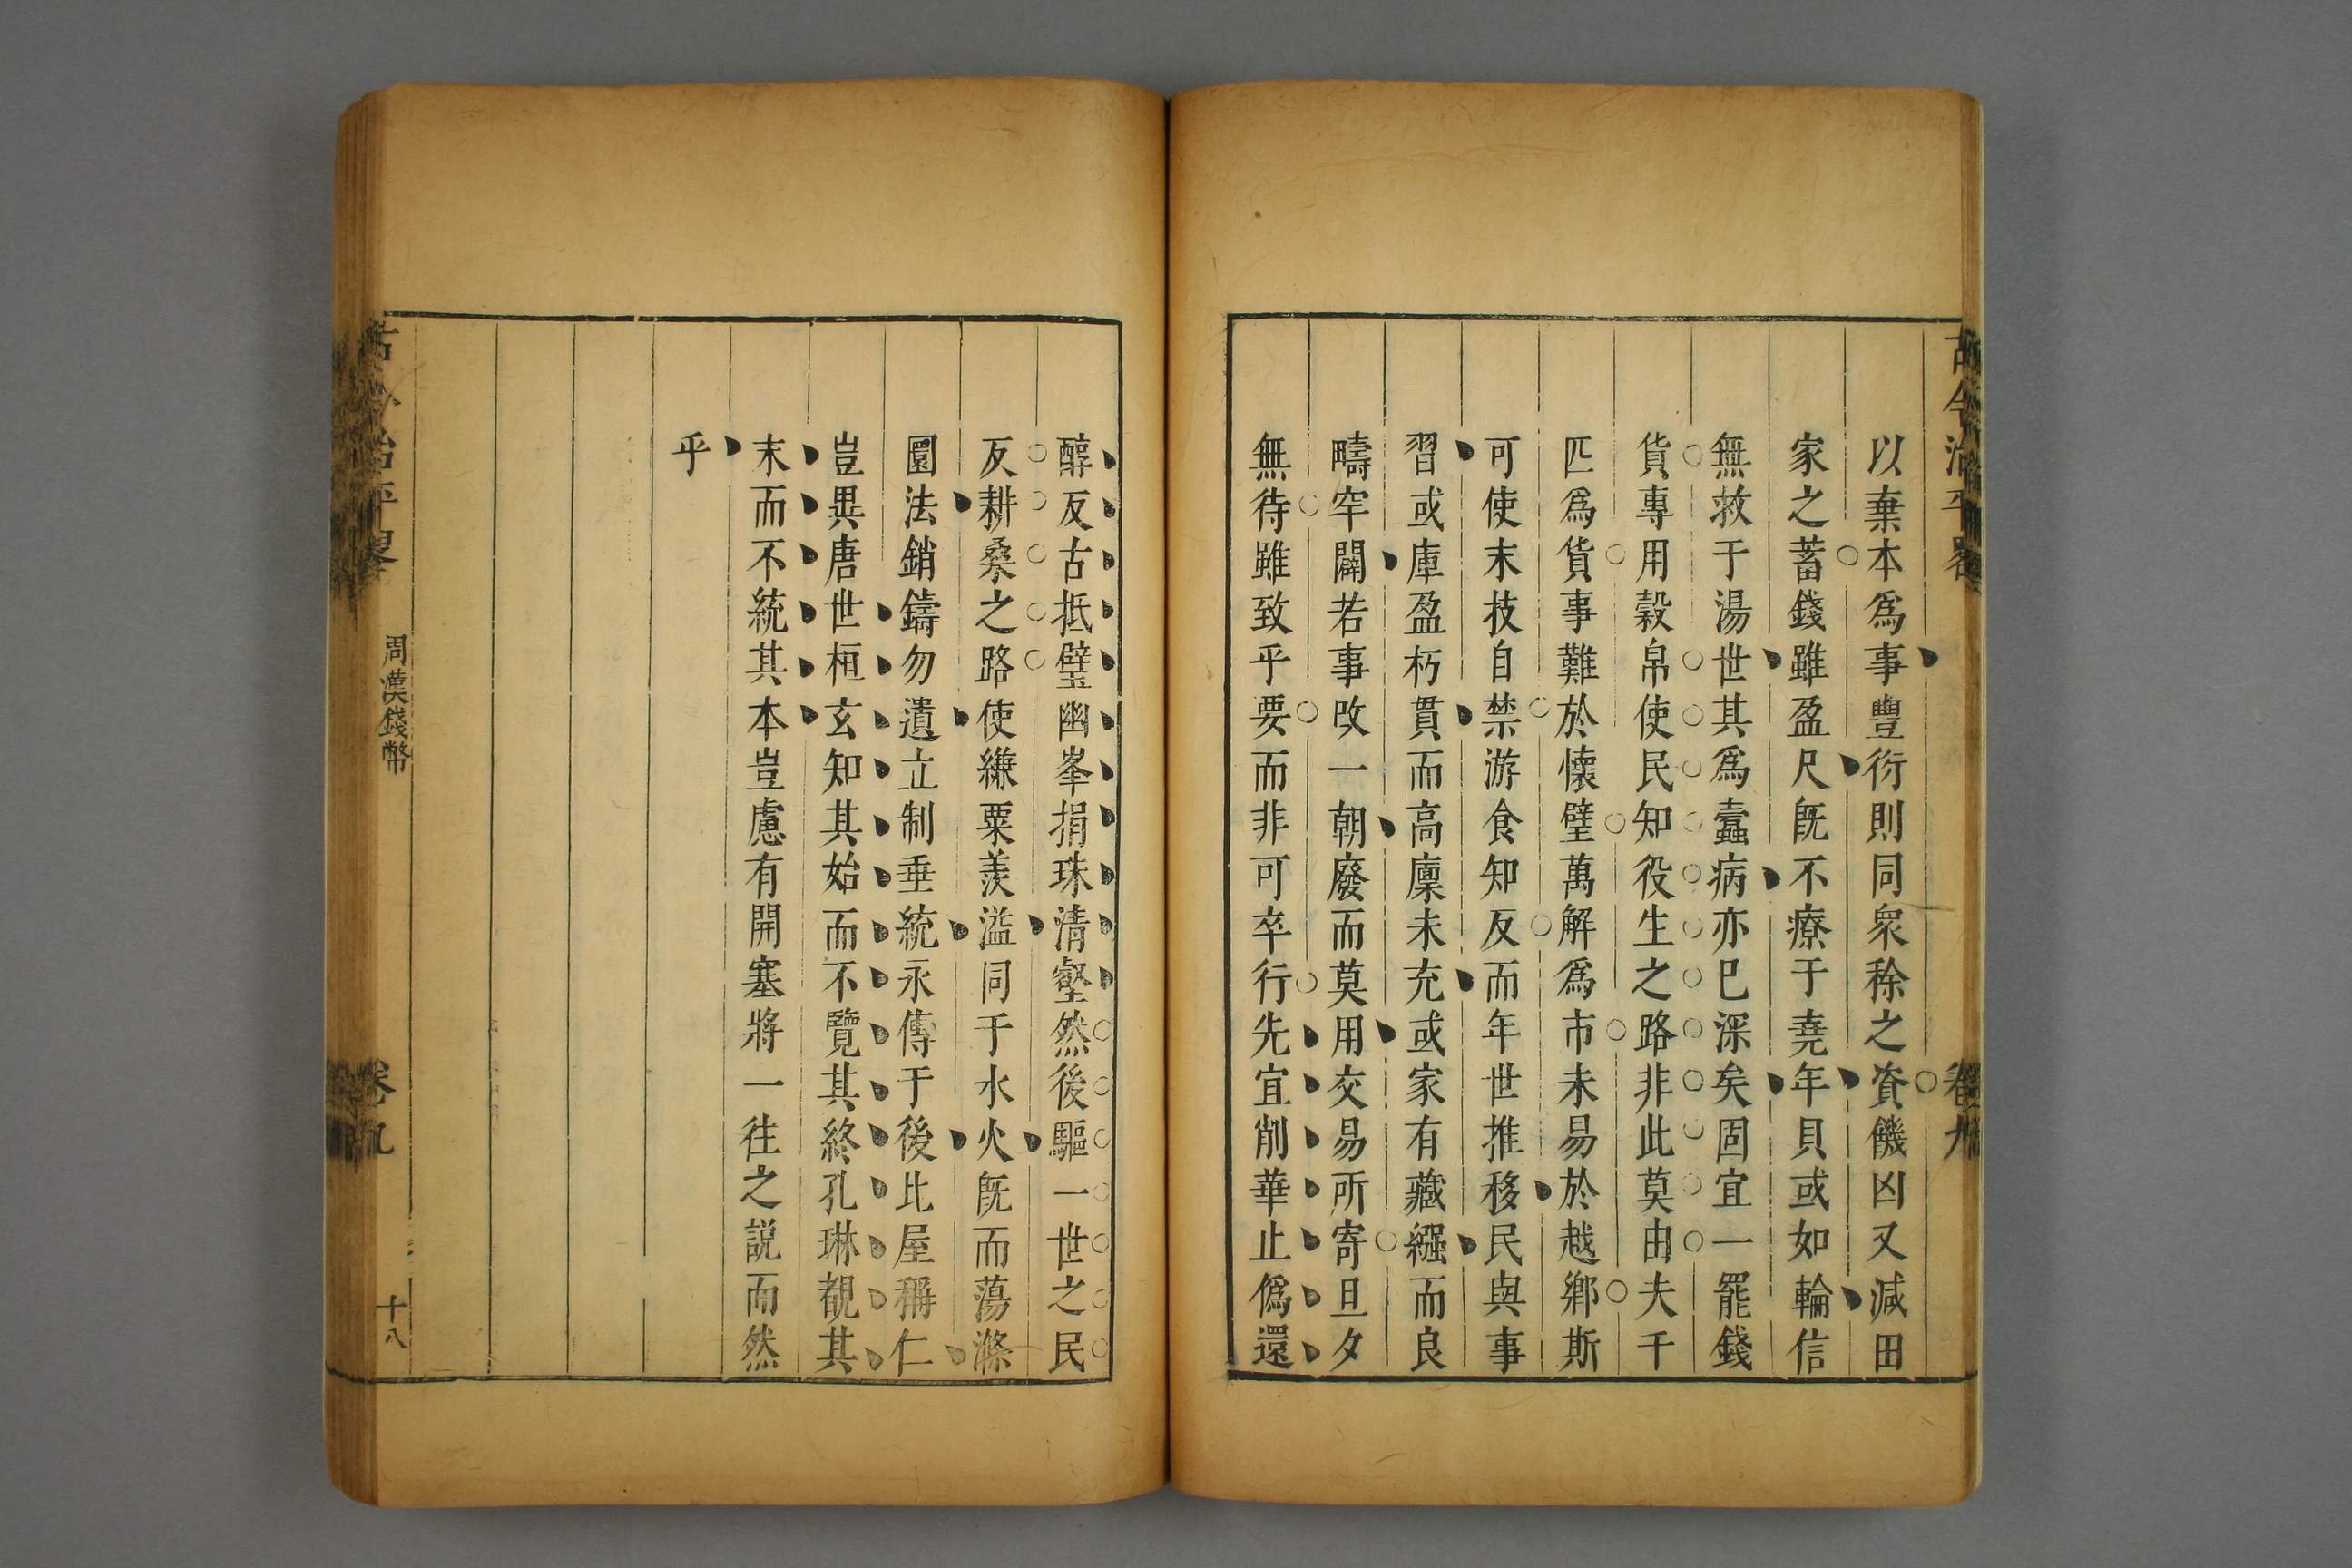 古今治平畧 卷九
以棄本爲事豐衍則同衆稌之資饑凶又減田
家之蓄錢雖盈尺旣不療于堯年貝或如輪信
無救于湯世其爲蠹病亦巳深矣固宜一罷錢
貨專用穀帛使民知役生之路非此莫由夫千
匹爲貨事難於懷璧萬解爲市未易於越鄉斯
可使末技自禁游食知反而年世推移民與事
習或庫盈朽貫而高廩未充或家有藏繦而良
疇罕闢若事改一朝廢而莫用交易所寄旦夕
無待雖致乎要而非可卒行先宜削華止僞還
醇反古抵璧幽峯捐珠清壑然後驅一世之民
反耕桑之路使縑粟羨溢同于水火旣而蕩滌
圜法銷鑄勿遺立制垂統永傳于後比屋稱仁
豈異唐世桓玄知其始而不覽其終孔琳覩其
末而不統其本豈慮有開塞將一往之説而然
乎
古今治平畧 周漢錢幣 卷九 十八